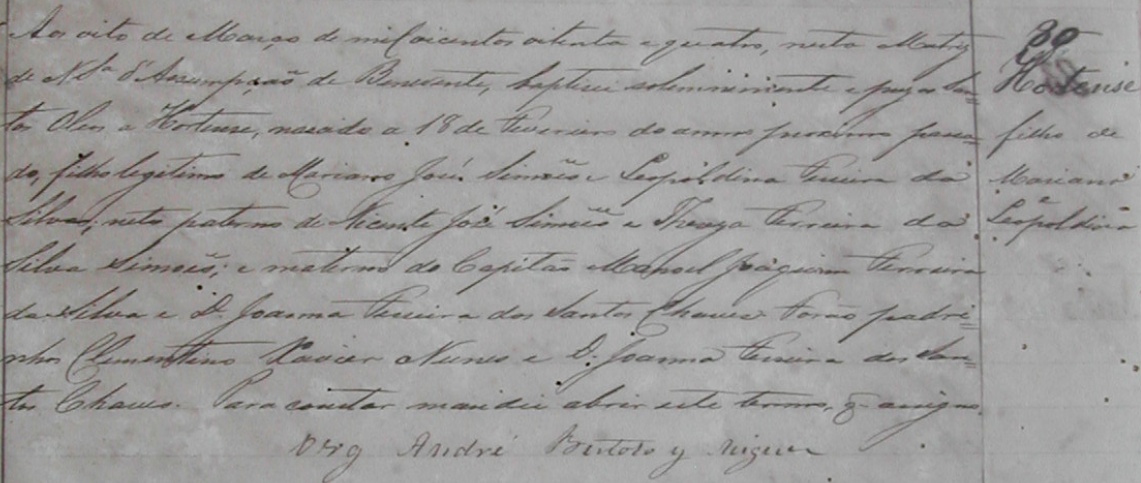 Aos oito de Março de mil oicentos oitenta e quatro, nesta Matriz
de N. Sª d'Assumpção de Benevente, baptisei solemnimente e puz os San=
tos Oleos a Hortense, nascido a 18 de Fevereiro do anno proximo passa=
do, filho legitimo de Mariano José Simões e Leopoldina Pereira da
Silva, neto paterno de Vicente José Simões e Thereza Ferreira da
Silva Simões; e materno do Capitão Manoel Joaquim Ferreira
da Silva e D. Joanna Pereira dos Santos Chaves. Forão padri=
nhos Clementino Xavier Nunes e D. Joanna Pereira dos San=
tos Chaves. Para constar mandei abrir este termo, q. assigno.
Vrg André
80
Hortense
filho de
Mariano
e
Leopoldina